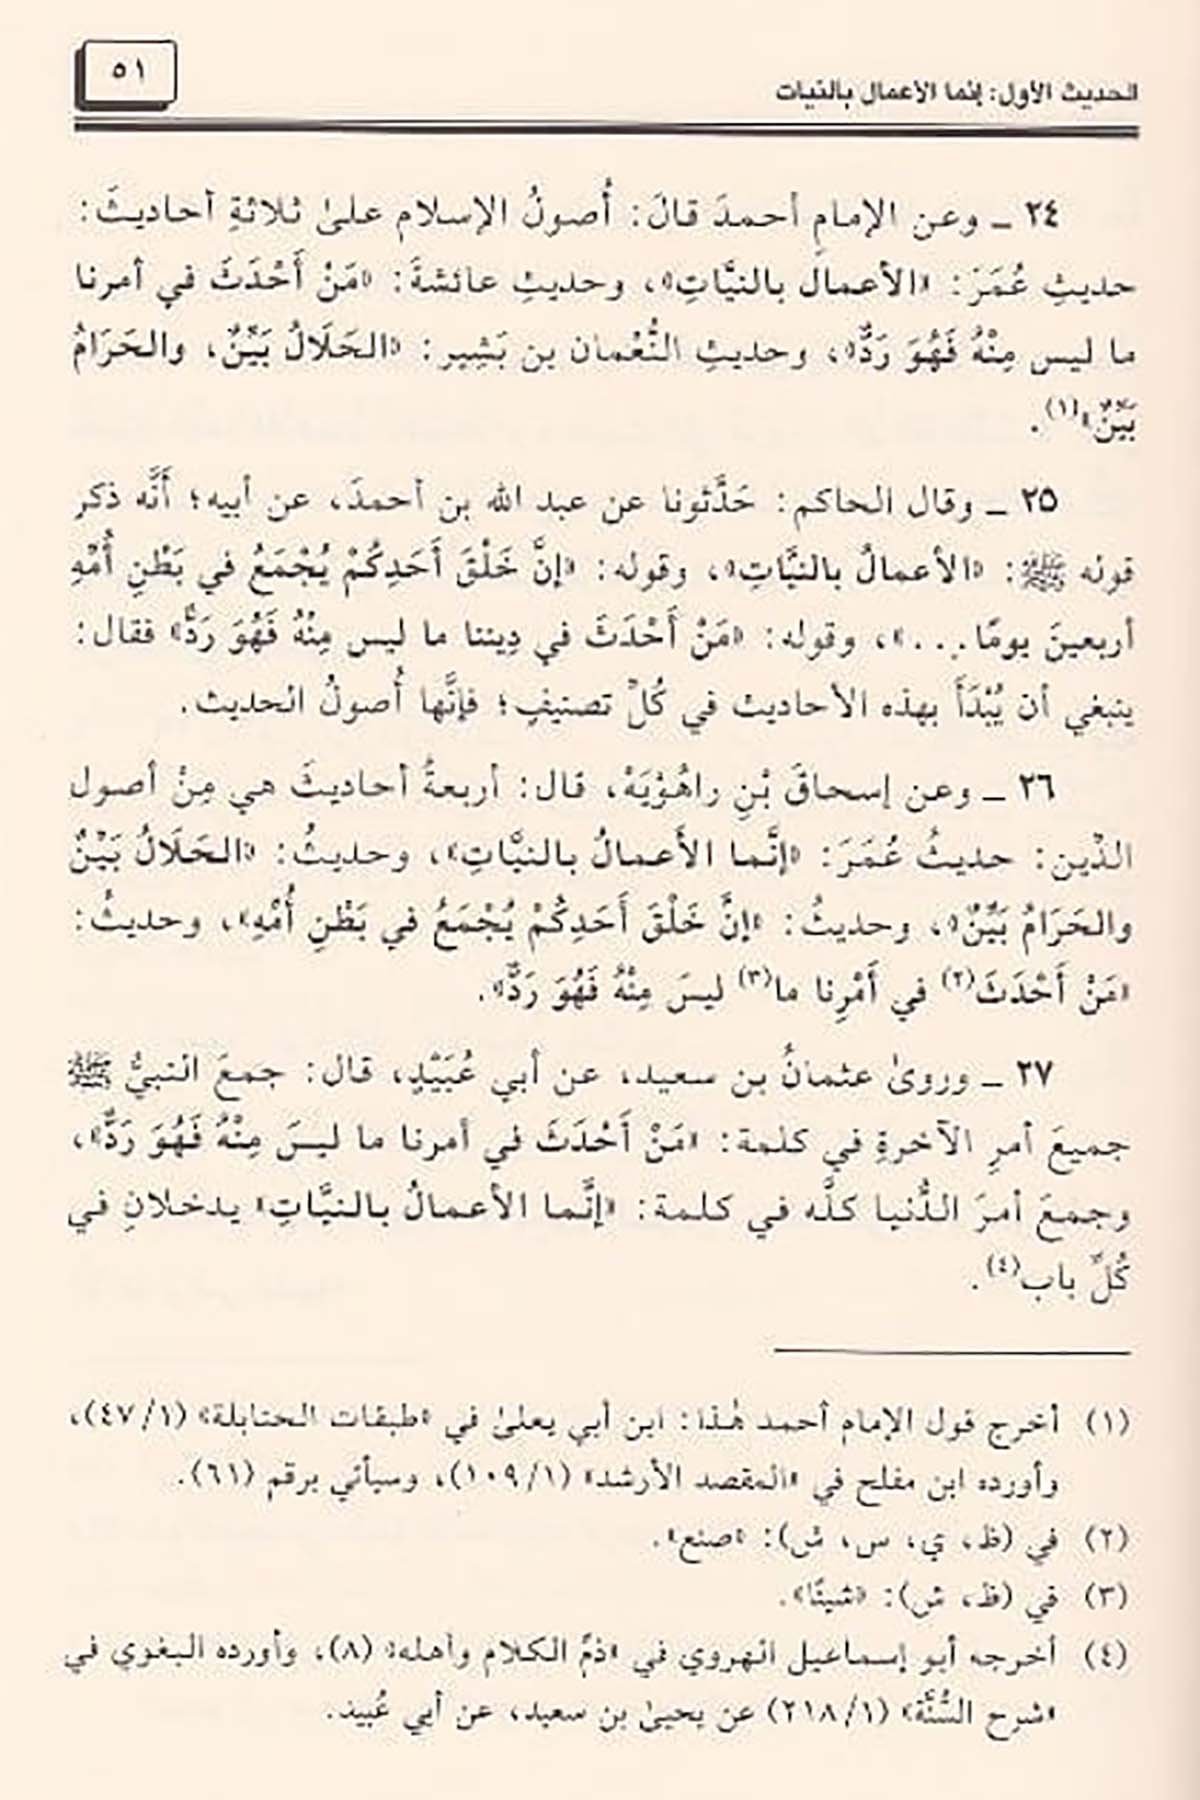 الحديث الأول: إنما الأعمال بالنيات
٥١
٢٤ ــ وعن الإمامِ أحمدَ قالَ: أُصولُ الإسلام علىٰ ثلاثةِ أحاديثَ:
حديثِ عُمَرَ: «الأعمال بالنيَّاتِ»، وحديثِ عائشةَ: «مَنْ أَحْدَثَ في أمرنا
ما ليس مِنْهُ فَهُوَ رَدٌّ»، وحديثِ النُّعْمان بن بَشِير: «الحَلَالُ بَيِّنٌ، والحَرَامُ
بَيِّنٌ»(١).
٢٥ ــ وقال الحاكم: حَدَّثونا عن عبد الله بن أحمدَ، عن أبيه؛ أَنَّه ذكر
قوله ﷺ: «الأعمالُ بالنيَّاتِ»، وقوله: «إنَّ خَلْقَ أَحَدِكُمْ يُجْمَعُ في بَطْنِ أُمِّهِ
أربعينَ يومًا...»، وقوله: «مَنْ أَحْدَثَ في دِيننا ما ليس مِنْهُ فَهُوَ رَدٌّ» فقال:
ينبغي أن يُبْدَأَ بهذه الأحاديث في كُلِّ تصنيفٍ؛ فإنَّها أُصولُ الحديث.
٢٦ ــ وعن إسحاقَ بْنِ راهُوْيَهْ، قال: أربعةُ أحاديثَ هي مِنْ أصول
الدِّين: حديثُ عُمَرَ: «إنَّما الأَعمالُ بالنيَّاتِ»، وحديثُ: «الحَلَالُ بَيِّنٌ
والحَرَامُ بَيِّنٌ»، وحديثُ: «إنَّ خَلْقَ أَحَدِكُمْ يُجْمَعُ في بَطْنِ أُمِّهِ»، وحديثُ:
«مَنْ أَحْدَثَ(٢) في أَمْرِنا ما(٣) ليسَ مِنْهُ فَهُوَ رَدٌّ».
٢٧ ــ وروىٰ عثمانُ بن سعيد، عن أبي عُبَيْدٍ، قال: جمعَ النبيُّ ﷺ
جميعَ أمرِ الآخرةِ في كلمة: «مَنْ أَحْدَثَ في أمرنا ما ليسَ مِنْهُ فَهُوَ رَدٌّ»،
وجمعَ أمرَ الدُّنيا كلَّه في كلمة: «إنَّما الأعمالُ بالنيَّاتِ» يدخلانِ في
كُلِّ باب(٤).
(١) أخرج قول الإمام أحمد هٰذا: ابن أبي يعلىٰ في «طبقات الحنابلة» (١/ ٤٧)،
وأورده ابن مفلح في «المقصد الأرشد» (١/ ١٠٩)، وسيأتي برقم (٦١).
(٢) في (ظ، ي، س، ش): «صنع».
(٣) في (ظ، ش): «شيئًا».
(٤) أخرجه أبو إسماعيل الهروي في «ذمّ الكلام وأهله» (٨)، وأورده البغوي في
«شرح السُّنَّة» (١/ ٢١٨) عن يحيىٰ بن سعيد، عن أبي عُبيد.